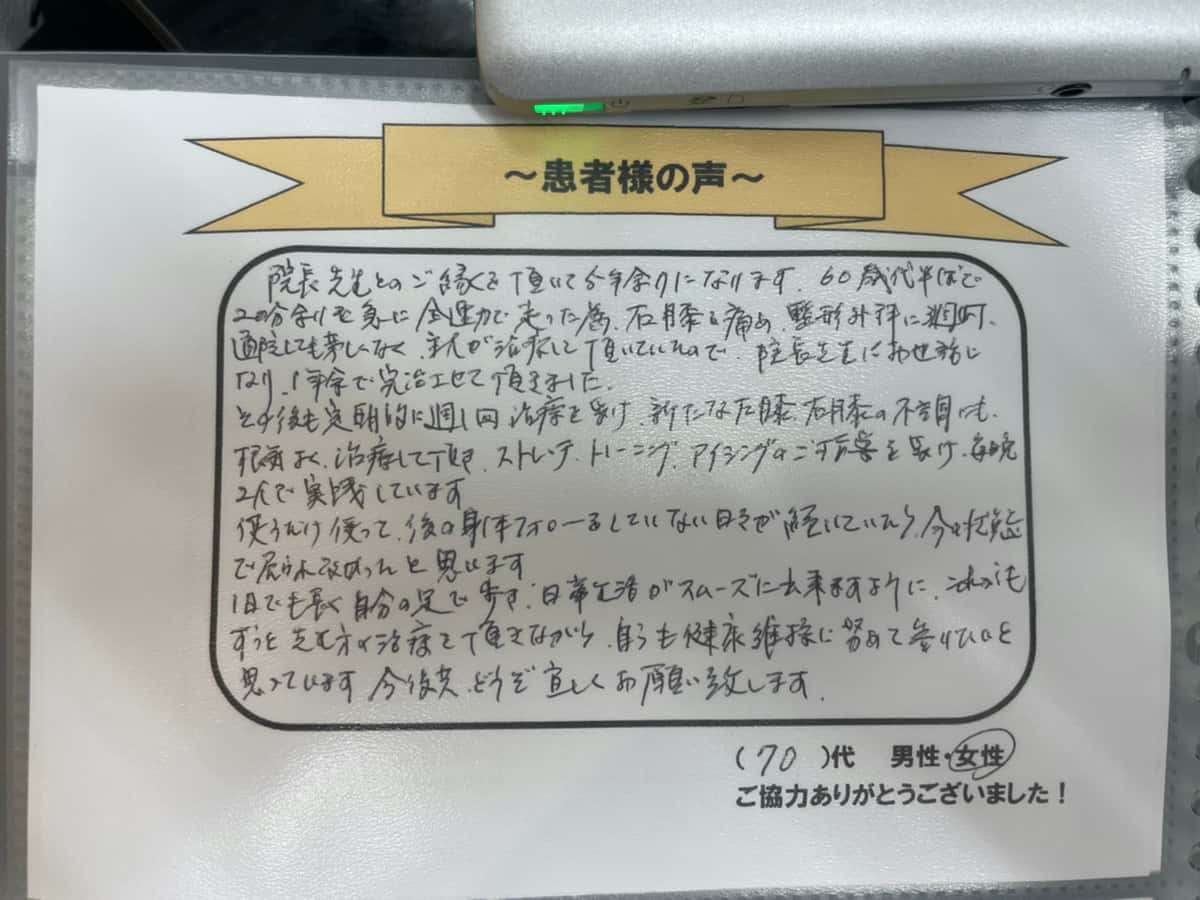 ～患者様の声～
院長先生とのご縁を頂いて 年余りになります。60歳代半ばで
20分余りを急に全速力で走った為、右膝を痛め、整形外科に
通院しても芳しくなく、主人が治療して頂いていたので、院長先生にお世話に
なり、1年余で完治させて頂きました。
その後も定期的に週1回治療を受け、新たな左膝、右膝の不調にも、
根気よく、治療して頂き、ストレッチ、トレーニング、アイシングの を受け、毎晩
2人で実践しています
使うだけ使って、後の身体フォローをしていない日々が続いていたら、今は
で と思います
1日でも長く自分の足で歩き、日常生活がスムーズに出来ますように、これからも
ずっと先生方の治療を頂きながら、自らも健康維持に努めて参りたいと
思っています 今後共、どうぞ宜しくお願い致します。
(70)代 男性・女性
ご協力ありがとうございました！